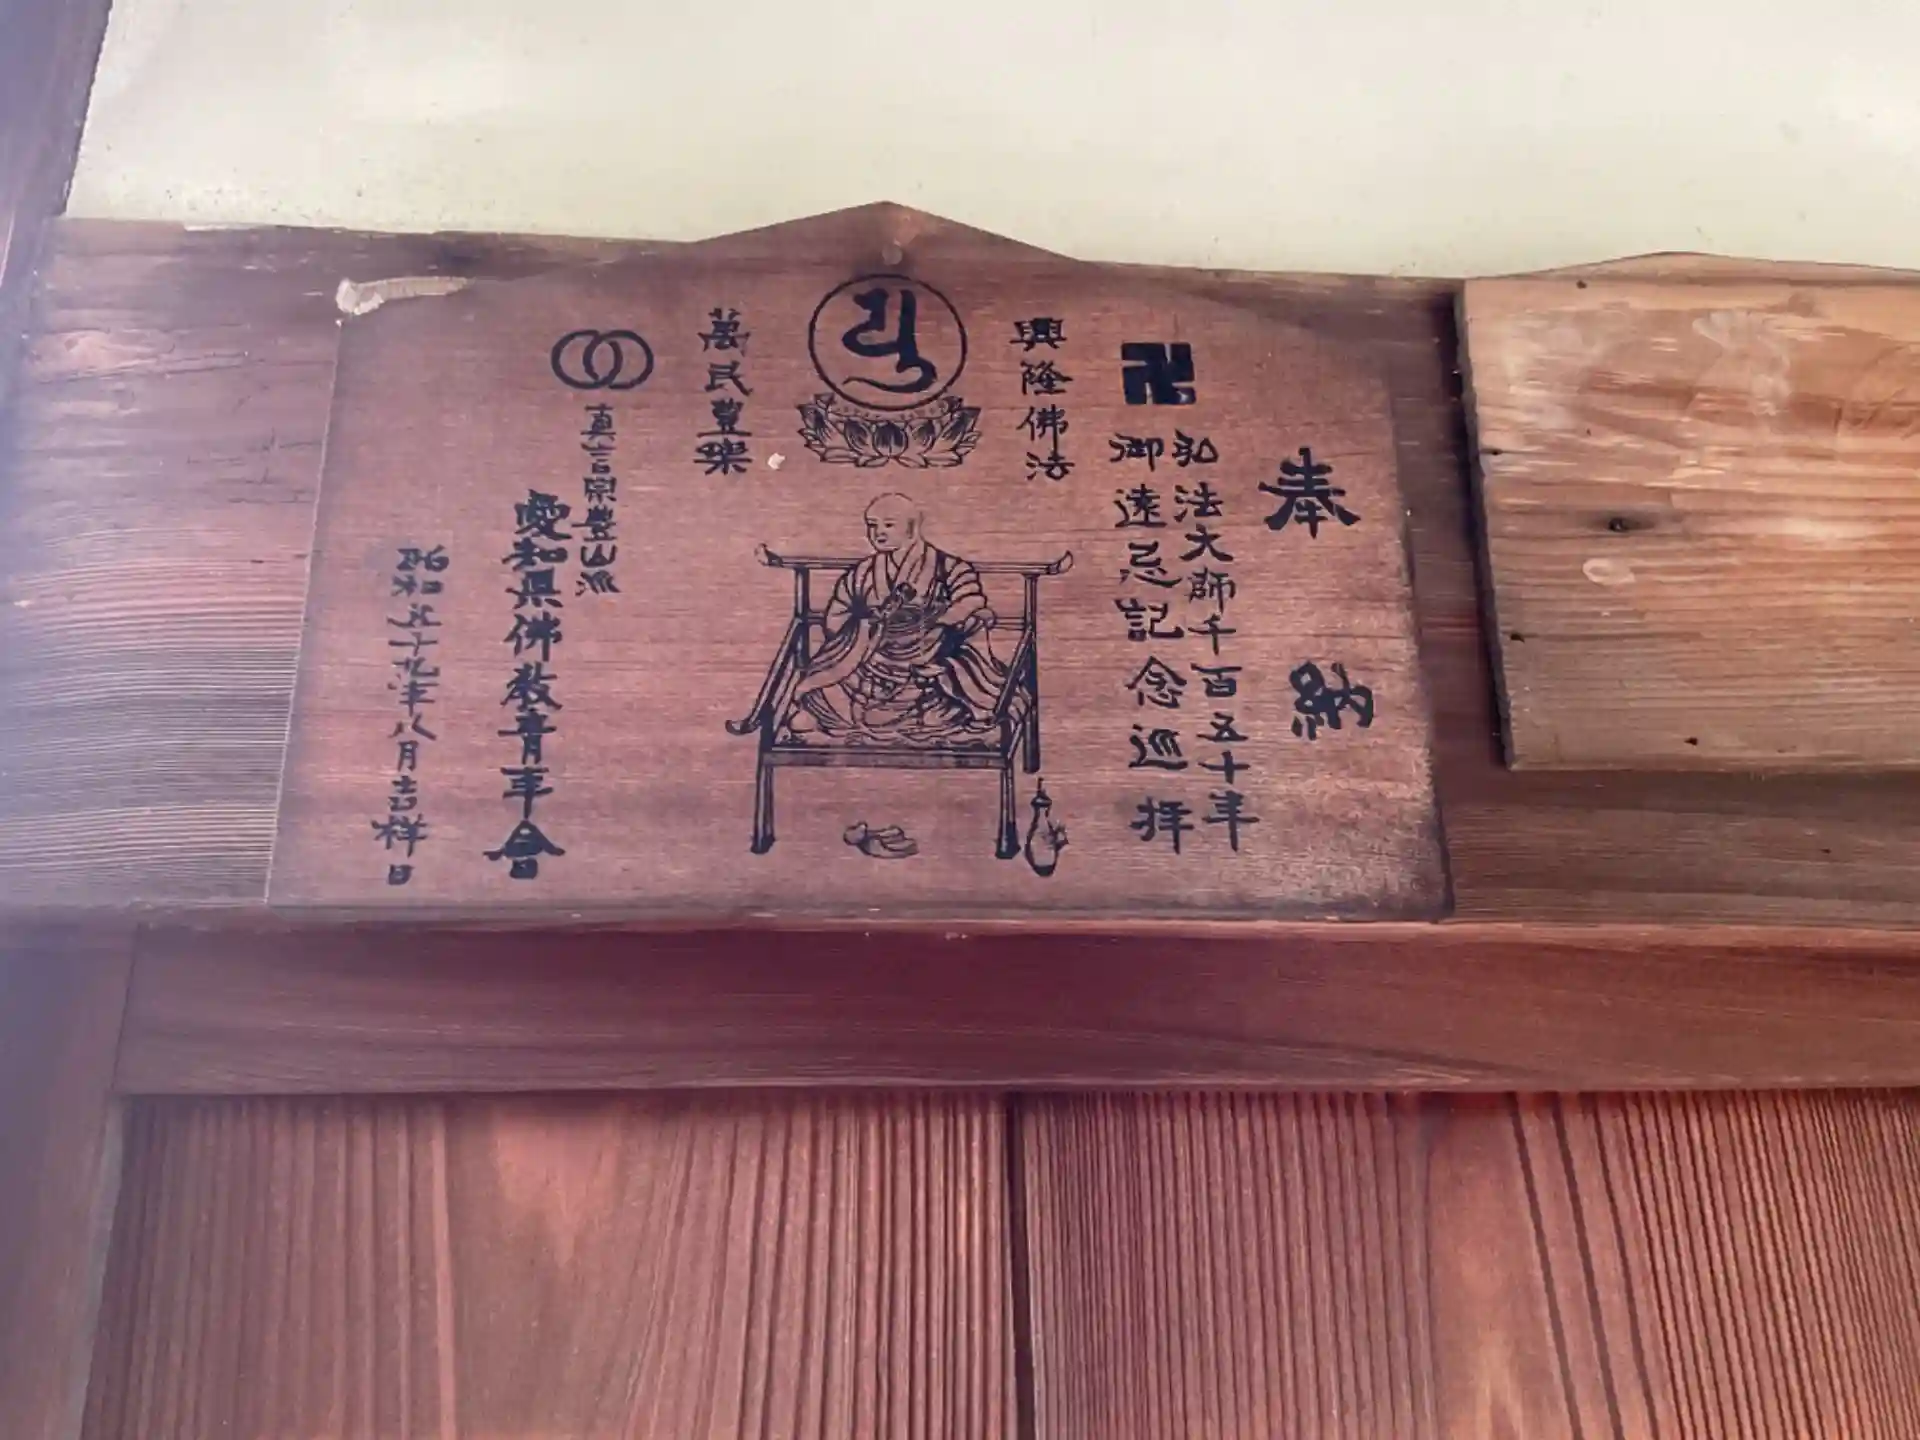 奉納
弘法大師千百五十年
御遠忌記念巡拝
卍
興隆佛法
萬民豊樂
真言宗豊山派
愛知県佛教青年會
昭和五十九年八月吉祥日